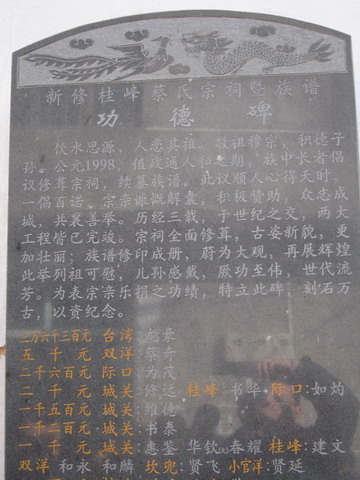 新修桂峰蔡氏宗祠暨族谱
功德碑
饮水思源，人恋其祖。敬祖穆宗，积德子
孙。公元1998，值政通人和之期，族中长者倡
议修葺宗祠，续纂族谱。此议顺人心得天时，
一倡百诺。宗亲慷慨解囊，积极赞助，众志成
城，共襄善举。历经三载，于世纪之交，两大
工程皆已完竣。宗祠全面修葺，古姿新貌，更
加壮丽；族谱修印成册，蔚为大观，再展辉煌
此举列祖可慰，儿孙感戴，厥功至伟，世代流
芳。为表宗亲乐捐之功绩，特立此碑，刻石万
古，以资纪念。
三万六千三百元 台湾：龙豪
五千元 双洋：蔡奇
二千六百元 际口：为茂
二千元 城关：修运 桂峰：书华 际口：如灼
一千五百元 城关：维德
一千二百元 城关：书泰
一千元 城关：惠鉴 华钦 春耀 桂峰：建文
双洋 和永 和麟 坎兜：贤飞 小官洋：贤延